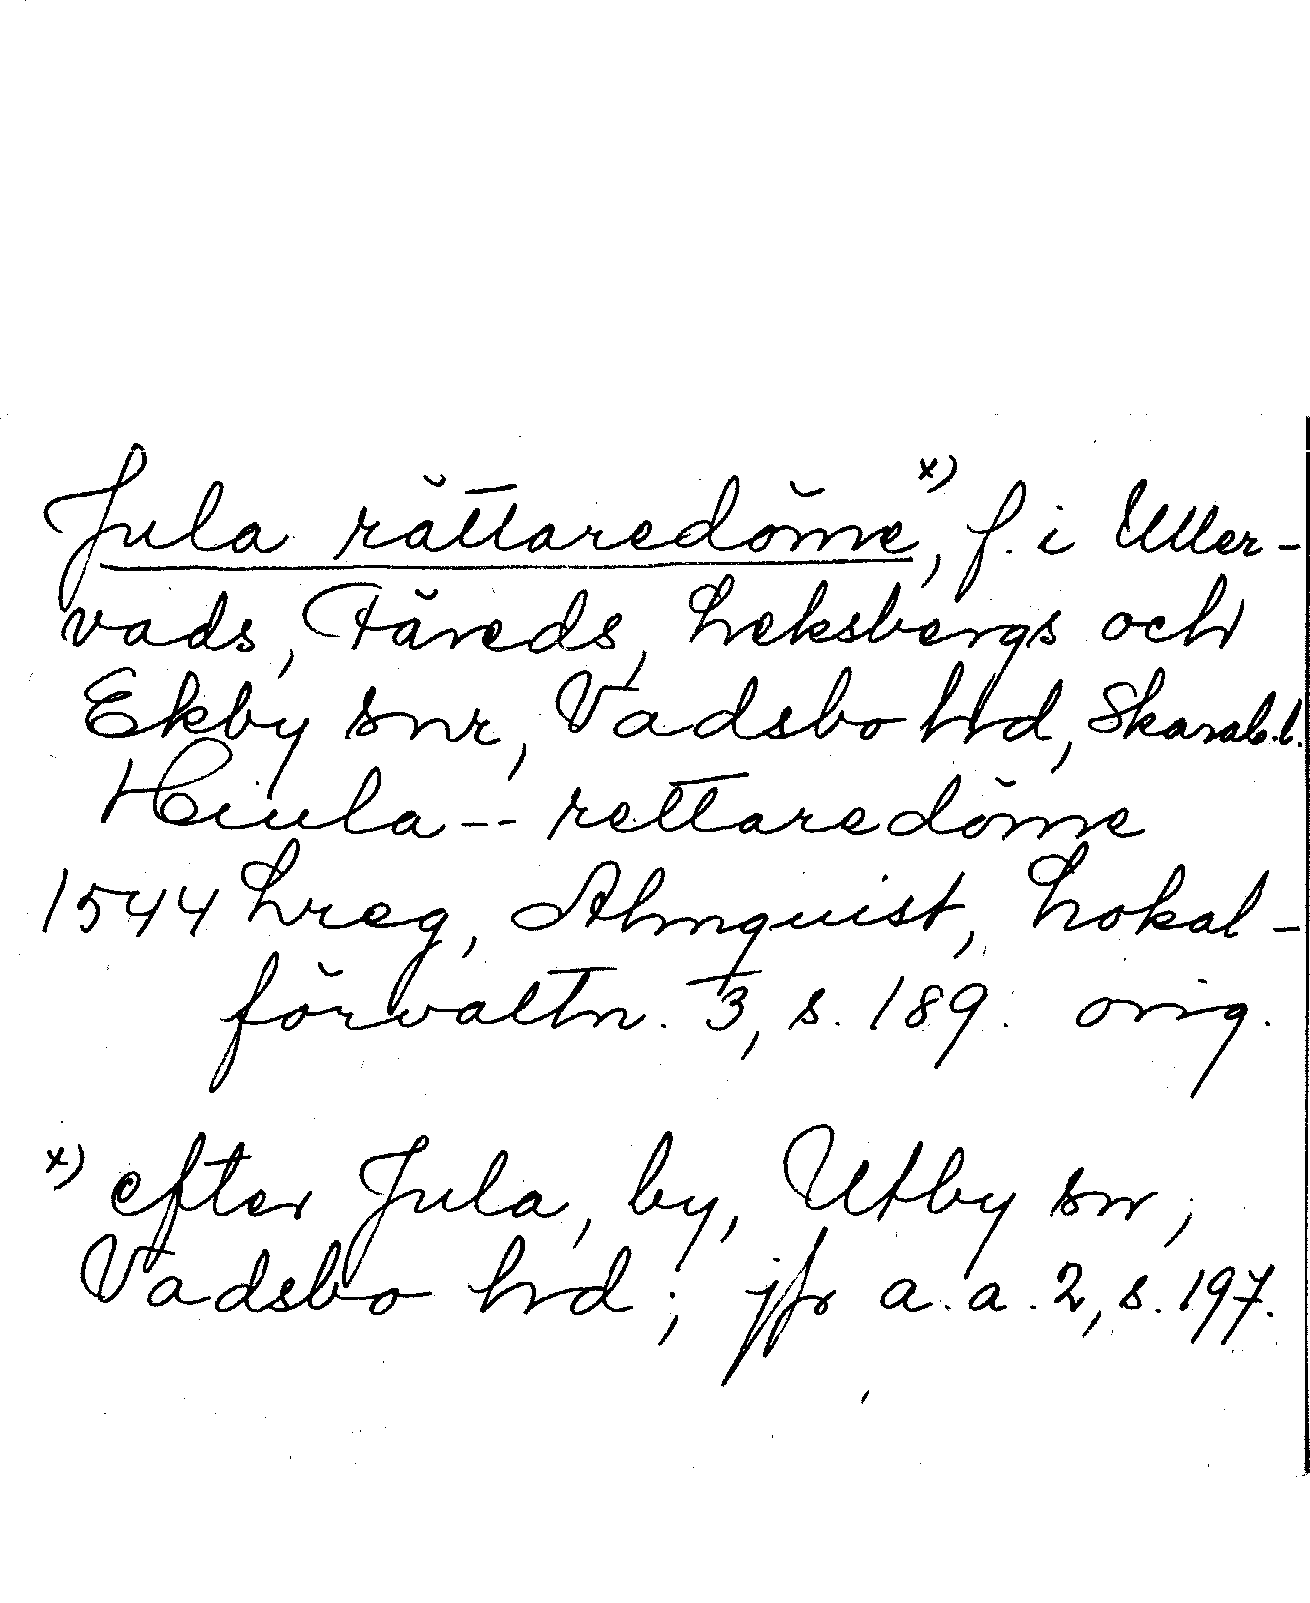 Jula rättaredöme x), f. i Uller-
vads, Färeds, Leksbergs och
Ekby snr, Vadsbo hd, Skarab.l.
Hiula -- rettaredöme
1544 Lreg, Almquist, Lokal-
förvaltn. 3, s. 189. orig.
x) efter Jula, by, Utby sn,
Vadsbo hd; jfr a.a. 2, s. 197.